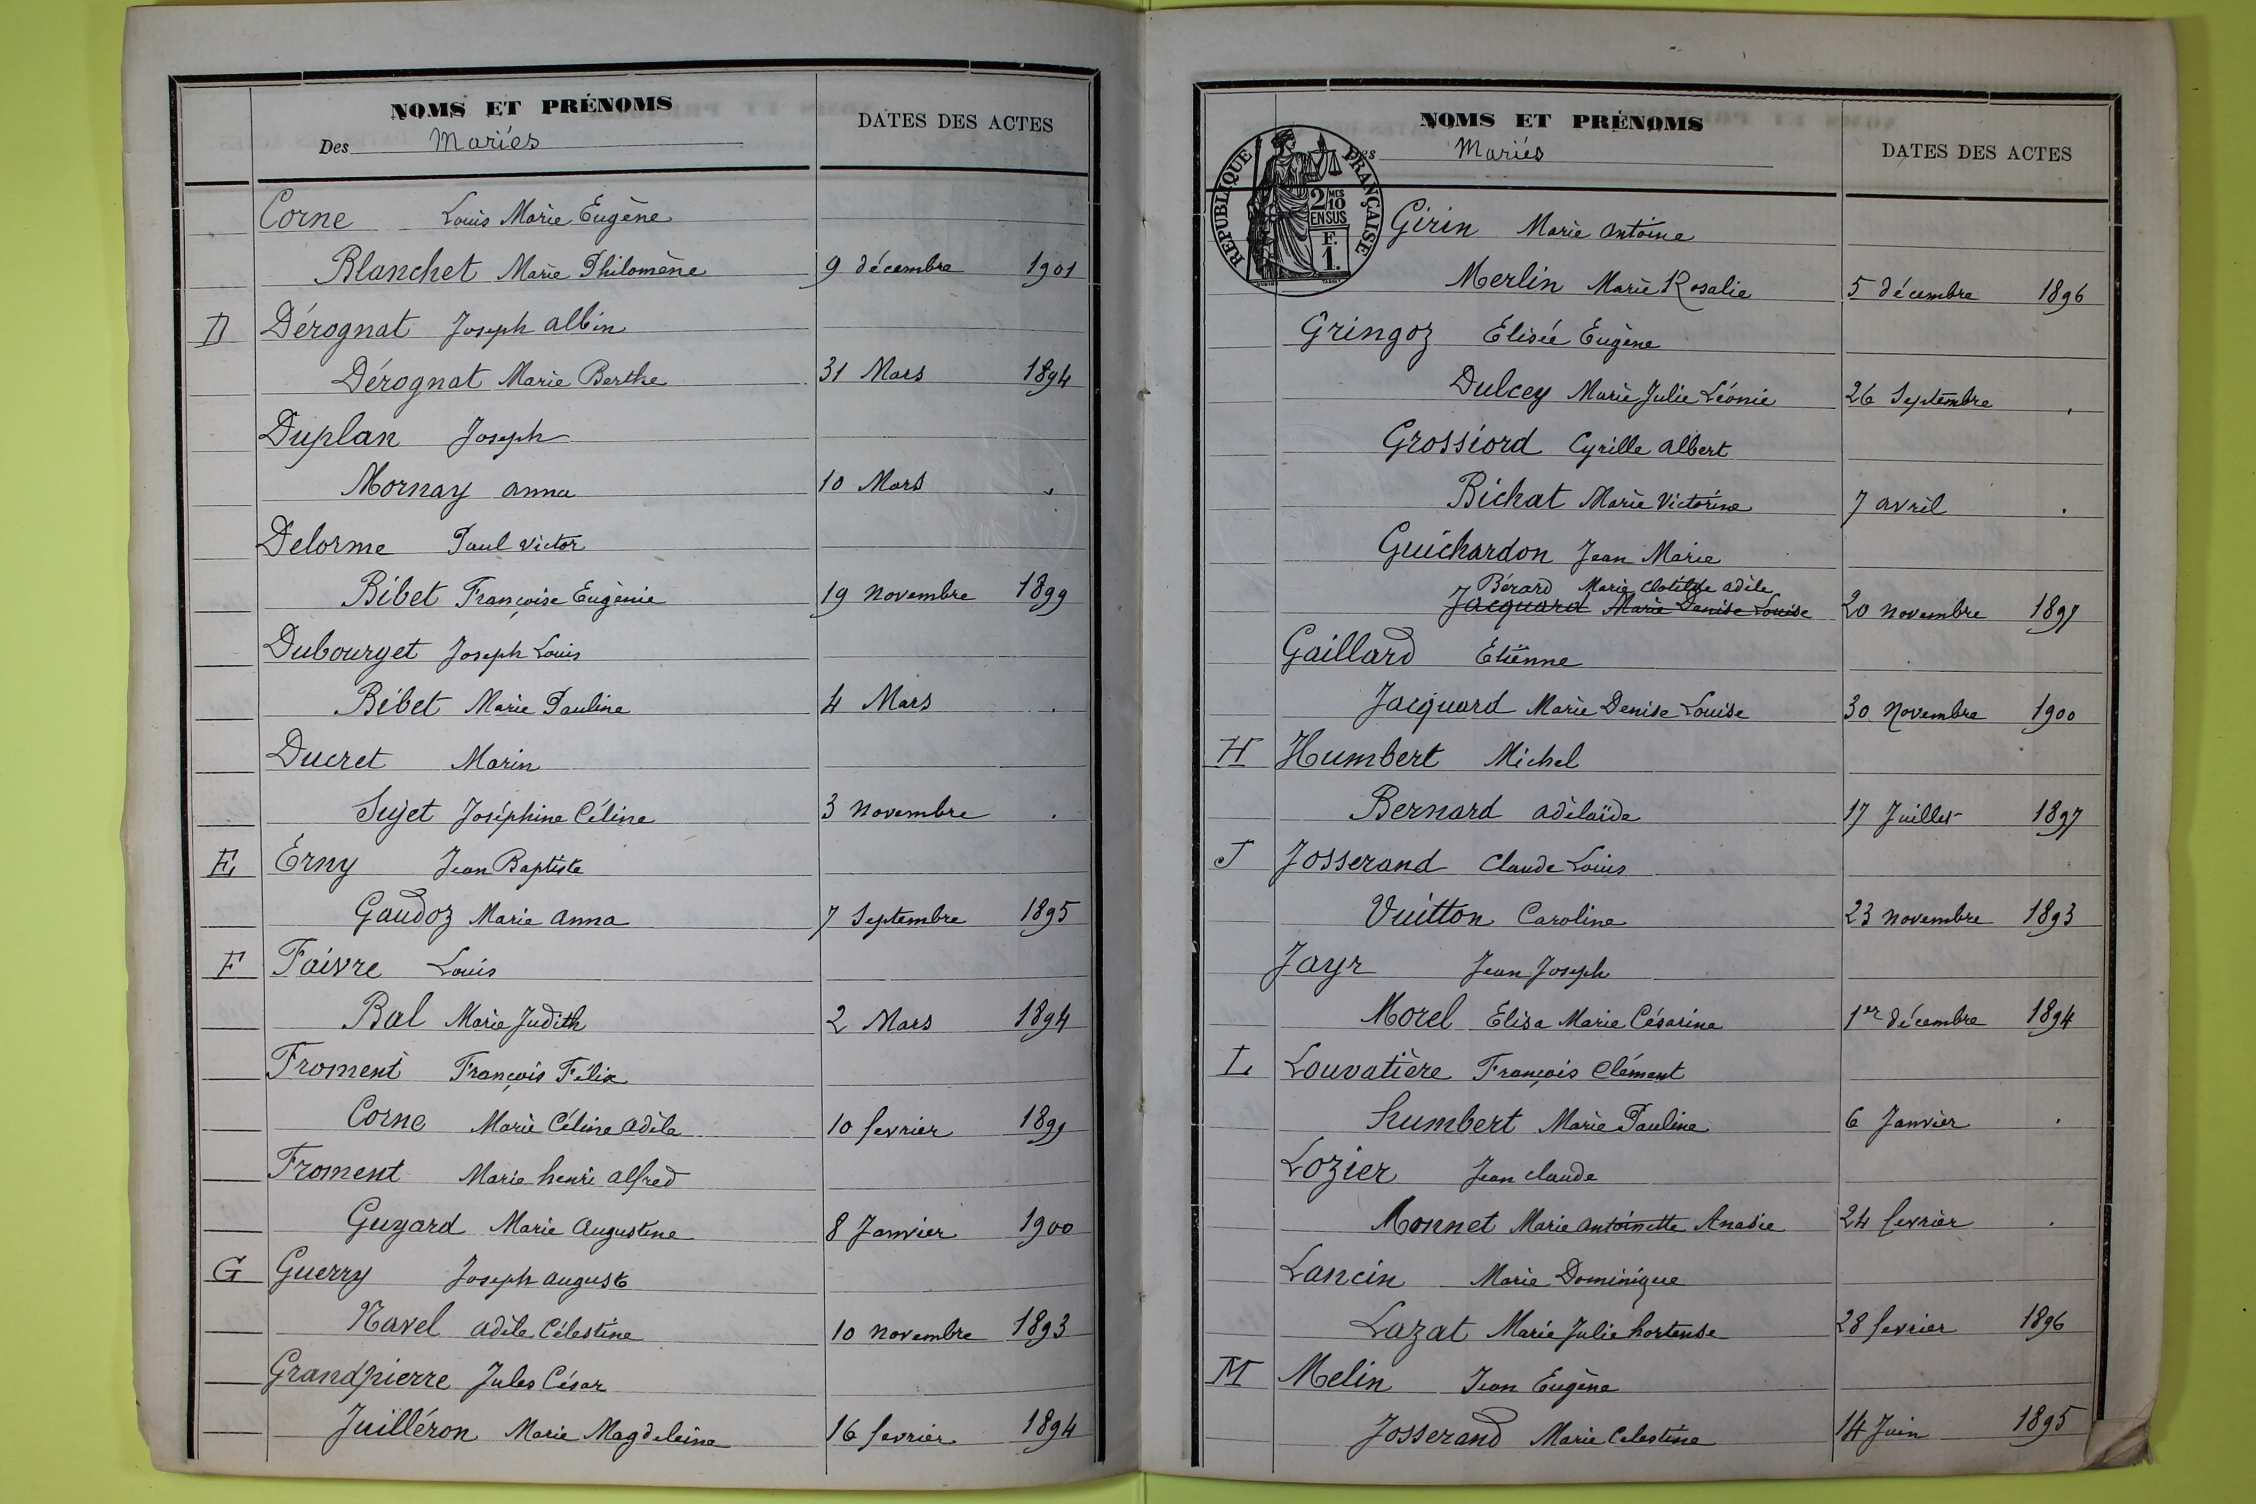 NOMS ET PRÉNOMS
Des Mariés
DATES DES ACTES
Corne Louis Marie Eugène
Blanchet Marie Philomène 9 décembre 1901
D Dérognat Joseph Albin
Dérognat Marie Berthe 31 Mars 1894
Duplan Joseph
Mornay Anna 10 Mars .
Delorme Paul Victor
Bibet Françoise Eugènie 19 novembre 1899
Dubourget Joseph Louis
Bibet Marie Pauline 4 Mars .
Ducret Marin
Sujet Joséphine Céline 3 novembre .
E Erny Jean Baptiste
Gaudoz Marie Anna 7 Septembre 1895
F Faivre Louis
Bal Marie Judith 2 Mars 1894
Froment François Félix
Corne Marie Céline Adèle 10 fevrier 1899
Froment Marie henri Alfred
Guyard Marie Augustine 8 Janvier 1900
G Guerry Joseph Auguste
Navel Adèle Célestine 10 novembre 1893
Grandpierre Jules César
Juilléron Marie Magdeleine 16 fevrier 1894
NOMS ET PRÉNOMS
Des Mariés
DATES DES ACTES
RÉPUBLIQUE FRANÇAISE
2 MES
10
EN SUS
F.
1.
Girin Marie Antoine
Merlin Marie Rosalie 5 décembre 1896
Gringoz Elisée Eugène
Dulcey Marie Julie Léonie 26 Septembre .
Grossiord Cyrille Albert
Bichat Marie Victorine 7 avril .
Guichardon Jean Marie
Bérard Marie Clotilde Adèle
Jacquard Marie Denise Louise 20 novembre 1897
Gaillard Etienne
Jacquard Marie Denise Louise 30 Novembre 1900
H Humbert Michel
Bernard Adélaïde 17 Juillet 1897
J Josserand Claude Louis
Vuitton Caroline 23 novembre 1893
Jayr Jean Joseph
Morel Elisa Marie Césarine 1er décembre 1894
L Louvatière François Clément
humbert Marie Pauline 6 Janvier .
Lozier Jean Claude
Monnet Marie Antoinette Anasie 24 fevrier .
Lancin Marie Dominique
Lazat Marie Julie hortense 28 fevrier 1896
M Melin Jean Eugène
Josserand Marie Celestine 14 Juin 1895